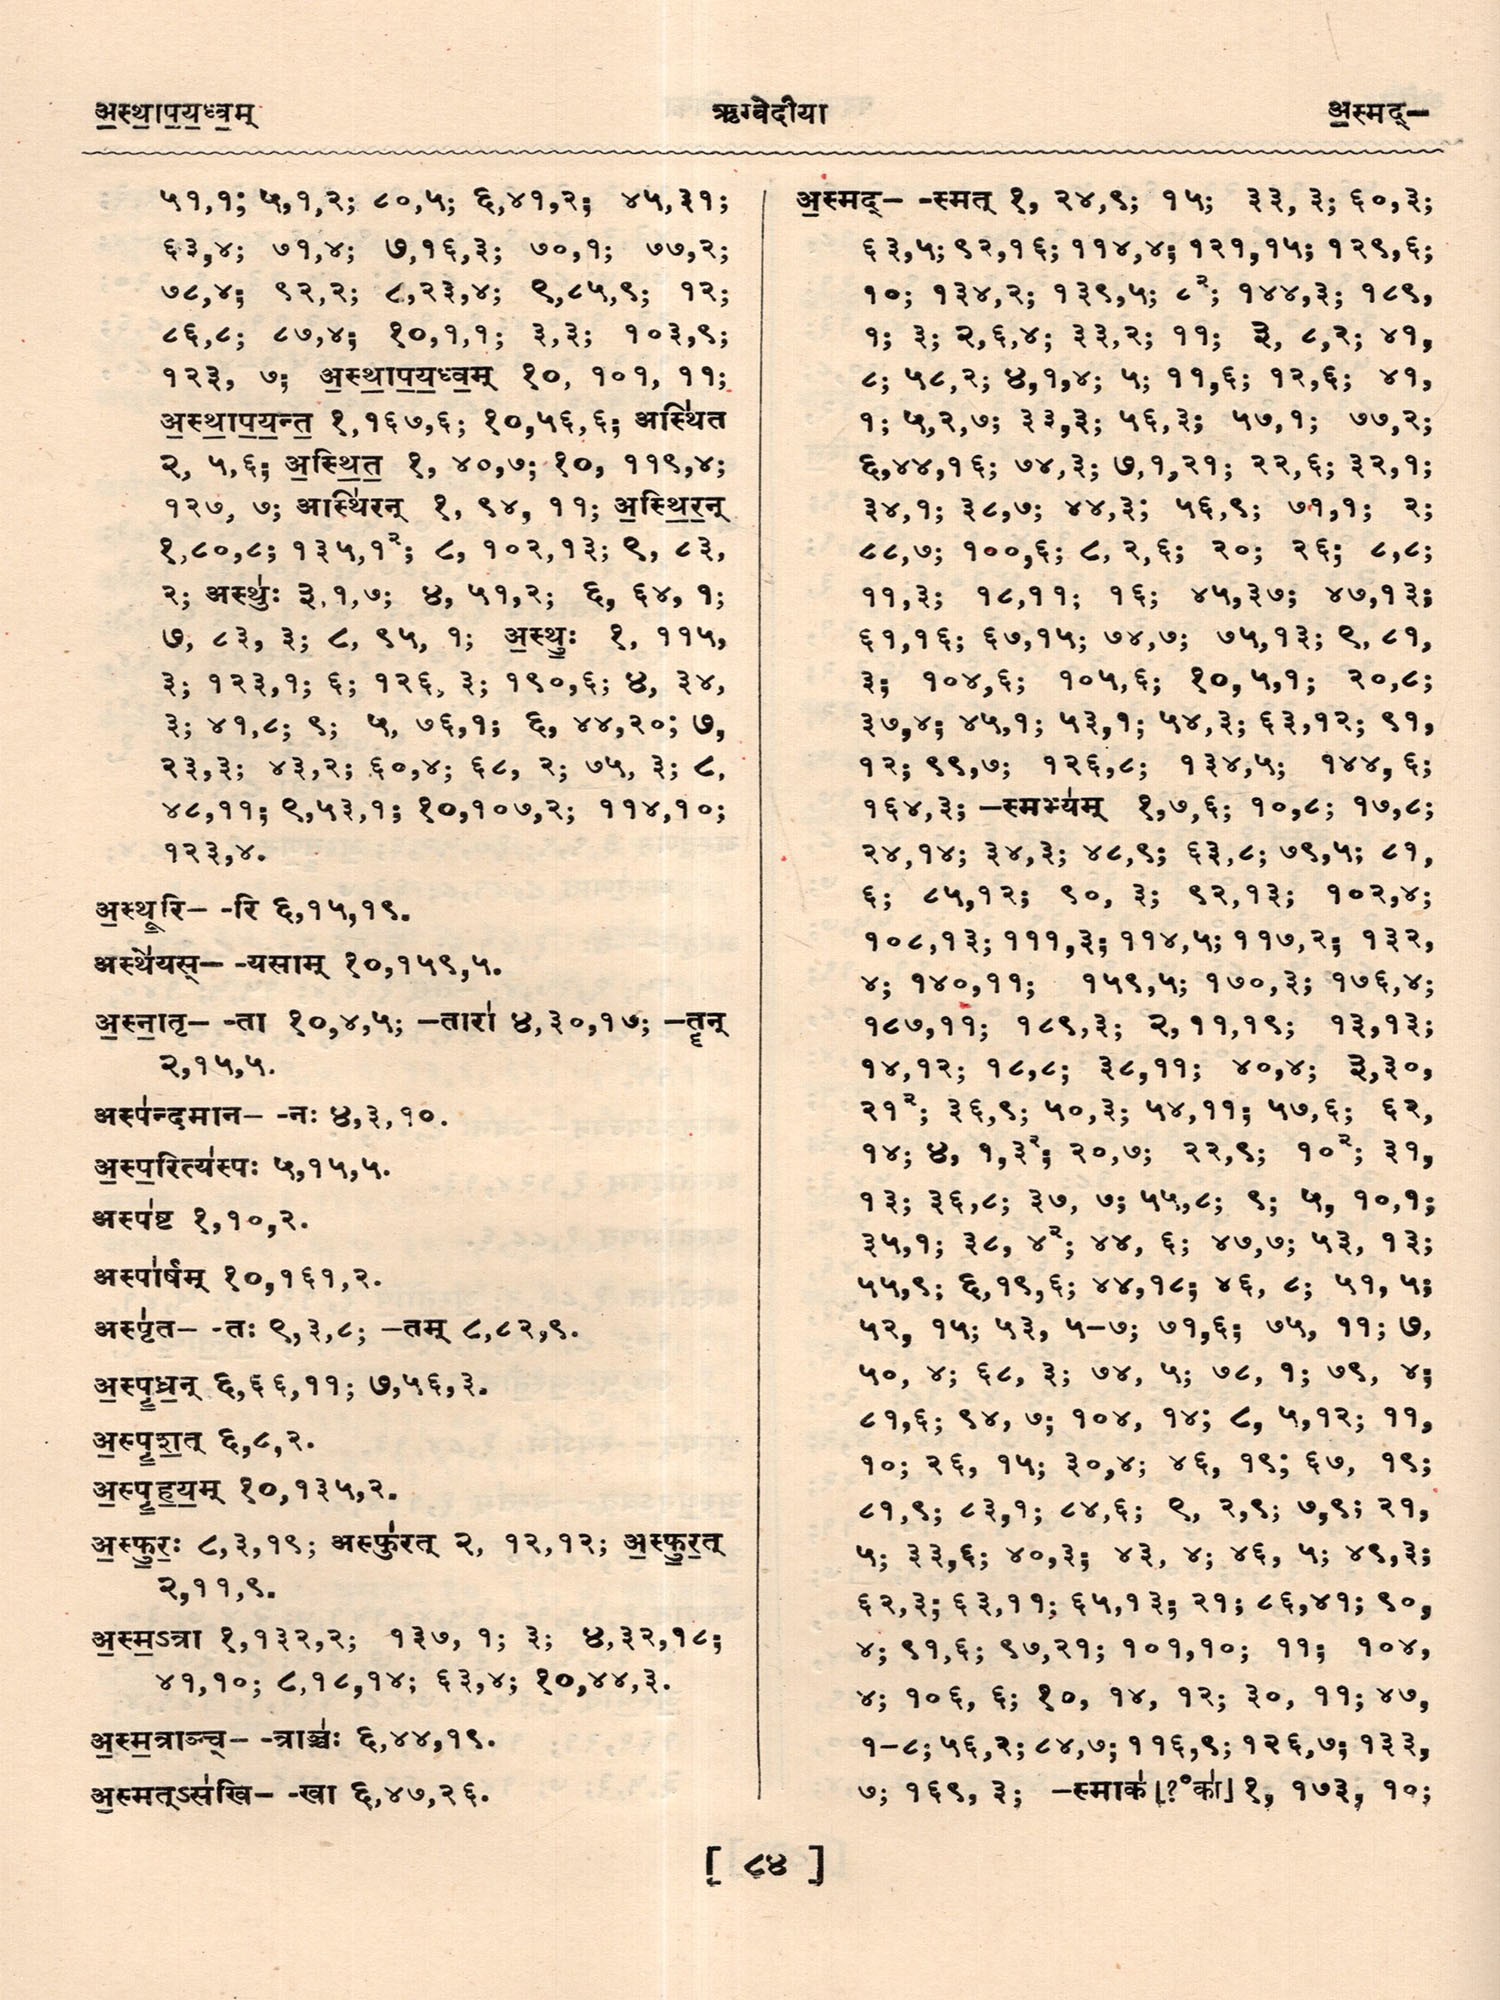 अ॒स्था॒प॒य॒ध्व॒म् ऋग्वेदीया अ॒स्मद्—
५१,१; ५,१,२; ८०,५; ६,४१,२; ४५,३१;
६३,४; ७१,४; ७,१६,३; ७०,१; ७७,२;
७८,४; ९२,२; ८,२३,४; ९,८५,९; १२;
८६,८; ८७,४; १०,१,१; ३,३; १०३,९;
१२३, ७; अ॒स्था॒प॒य॒ध्व॒म् १०, १०१, ११;
अ॒स्था॒प॒य॒न्त॒ १,१६७,६; १०,५६,६; अस्थि॑त
२, ५,६; अ॒स्थि॒त॒ १, ४०,७; १०, ११९,४;
१२७, ७; आस्थि॑रन् १, ९४, ११; अ॒स्थि॒र॒न्
१,८०,८; १३५,१²; ८, १०२,१३; ९, ८३,
२; अस्थुः॑ ३,१,७; ४, ५१,२; ६, ६४, १;
७, ८३, ३; ८, ९५, १; अ॒स्थुः॒ १, ११५,
३; १२३,१; ६; १२६, ३; १९०,६; ४, ३४,
३; ४१,८; ९; ५, ७६,१; ६, ४४,२०; ७,
२३,३; ४३,२; ६०,४; ६८, २; ७५, ३; ८,
४८,११; ९,५३,१; १०,१०७,२; ११४,१०;
१२३,४.
अ॒स्थू॒रि— -रि ६,१५,१९.
अस्थे॑यस्— -यसाम् १०,१५९,५.
अ॒स्ना॒तृ— -ता १०,४,५; —तारा॑ ४,३०,१७; —तॄ॒न्
२,१५,५.
अस्प॑न्दमान— -नः ४,३,१०.
अ॒स्प॒रित्य॑स्पः ५,१५,५.
अस्प॑ष्ट १,१०,२.
अस्पा॑र्षम् १०,१६१,२.
अस्पृ॑त— -तः ९,३,८; —तम् ८,८२,९.
अ॒स्पृ॒ध्र॒न् ६,६६,११; ७,५६,३.
अ॒स्पृ॒श॒त् ६,८,२.
अ॒स्पृ॒ह॒य॒म् १०,१३५,२.
अ॒स्फु॒रः॒ ८,३,१९; अस्फु॑रत् २, १२,१२; अ॒स्फु॒र॒त्
२,११,९.
अ॒स्म॒ऽत्रा १,१३२,२; १३७, १; ३; ४,३२,१८;
४१,१०; ८,१८,१४; ६३,४; १०,४४,३.
अ॒स्म॒त्राञ्च्— -त्राञ्चः॑ ६,४४,१९.
अ॒स्मत्ऽस॑खि— -खा ६,४७,२६.
अ॒स्मद्— -स्मत् १, २४,९; १५; ३३, ३; ६०,३;
६३,५; ९२,१६; ११४,४; १२१,१५; १२९,६;
१०; १३४,२; १३९,५; ८²; १४४,३; १८९,
१; ३; २,६,४; ३३,२; ११; ३, ८,२; ४१,
८; ५८,२; ४,१,४; ५; ११,६; १२,६; ४१,
१; ५,२,७; ३३,३; ५६,३; ५७,१; ७७,२;
६,४४,१६; ७४,३; ७,१,२१; २२,६; ३२,१;
३४,१; ३८,७; ४४,३; ५६,९; ७१,१; २;
८८,७; १००,६; ८, २,६; २०; २६; ८,८;
११,३; १८,११; १६; ४५,३७; ४७,१३;
६१,१६; ६७,१५; ७४,७; ७५,१३; ९, ८१,
३; १०४,६; १०५,६; १०,५,१; २०,८;
३७,४; ४५,१; ५३,१; ५४,३; ६३,१२; ९१,
१२; ९९,७; १२६,८; १३४,५; १४४, ६;
१६४,३; —स्मभ्य॑म् १,७,६; १०,८; १७,८;
२४,१४; ३४,३; ४८,९; ६३,८; ७९,५; ८१,
६; ८५,१२; ९०, ३; ९२,१३; १०२,४;
१०८,१३; १११,३; ११४,५; ११७,२; १३२,
४; १४०,११; १५९,५; १७०,३; १७६,४;
१८७,११; १८९,३; २,११,१९; १३,१३;
१४,१२; १८,८; ३८,११; ४०,४; ३,३०,
२१²; ३६,९; ५०,३; ५४,११; ५७,६; ६२,
१४; ४, १,३²; २०,७; २२,९; १०²; ३१,
१३; ३६,८; ३७, ७; ५५,८; ९; ५, १०,१;
३५,१; ३८, ४²; ४४, ६; ४७,७; ५३, १३;
५५,९; ६,१९,६; ४४,१८; ४६, ८; ५१, ५;
५२, १५; ५३, ५—७; ७१,६; ७५, ११; ७,
५०, ४; ६८, ३; ७४, ५; ७८, १; ७९, ४;
८१,६; ९४, ७; १०४, १४; ८, ५,१२; ११,
१०; २६, १५; ३०,४; ४६, १९; ६७, १९;
८१,९; ८३,१; ८४,६; ९, २,९; ७,९; २१,
५; ३३,६; ४०,३; ४३, ४; ४६, ५; ४९,३;
६२,३; ६३,११; ६५,१३; २१; ८६,४१; ९०,
४; ९१,६; ९७,२१; १०१,१०; ११; १०४,
४; १०६, ६; १०, १४, १२; ३०, ११; ४७,
१—८; ५६,२; ८४,७; ११६,९; १२६,७; १३३,
७; १६९, ३; —स्माक॑[?°का॑] १, १७३, १०;
[ ८४ ]